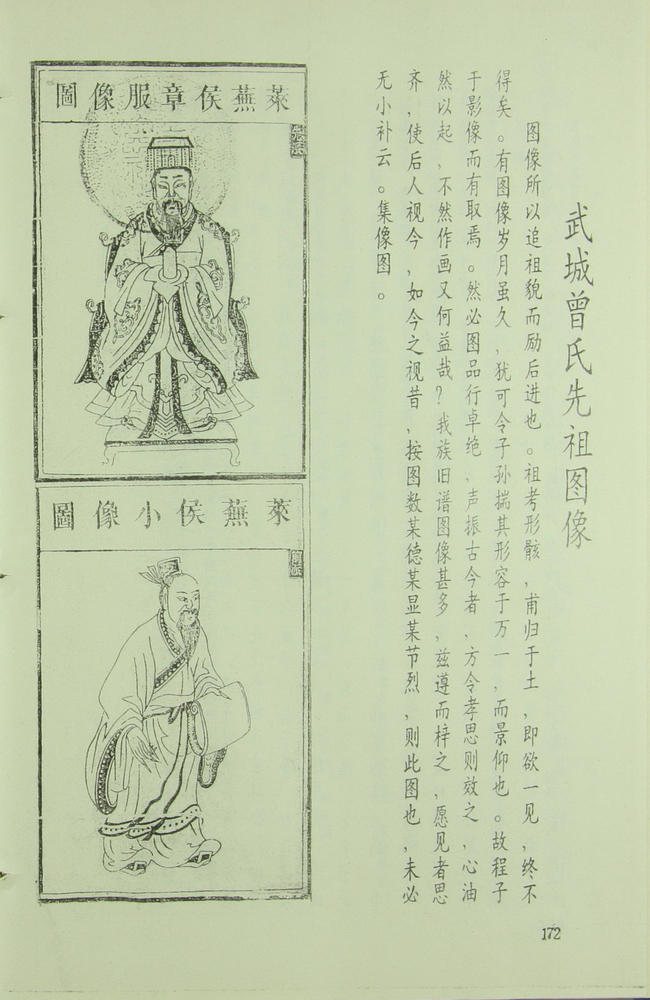 武城曾氏先祖图像
图像所以追祖貌而励后进也。祖考形骸,甫归于土,即欲一见,终不
得矣。有图像岁月虽久,犹可令子孙揣其形容于万一,而景仰也。故程子
于影像而有取焉。然必图品行卓绝,声振古今者,方令孝思则效之,心油
然以起,不然作画又何益哉?我族旧谱图像甚多,兹遵而梓之,愿见者思
齐,使后人视今,如今之视昔,按图数某德某显某节烈,则此图也,未必
无小补云。集像图。
萊蕪侯章服像圖
萊蕪侯小像圖
172